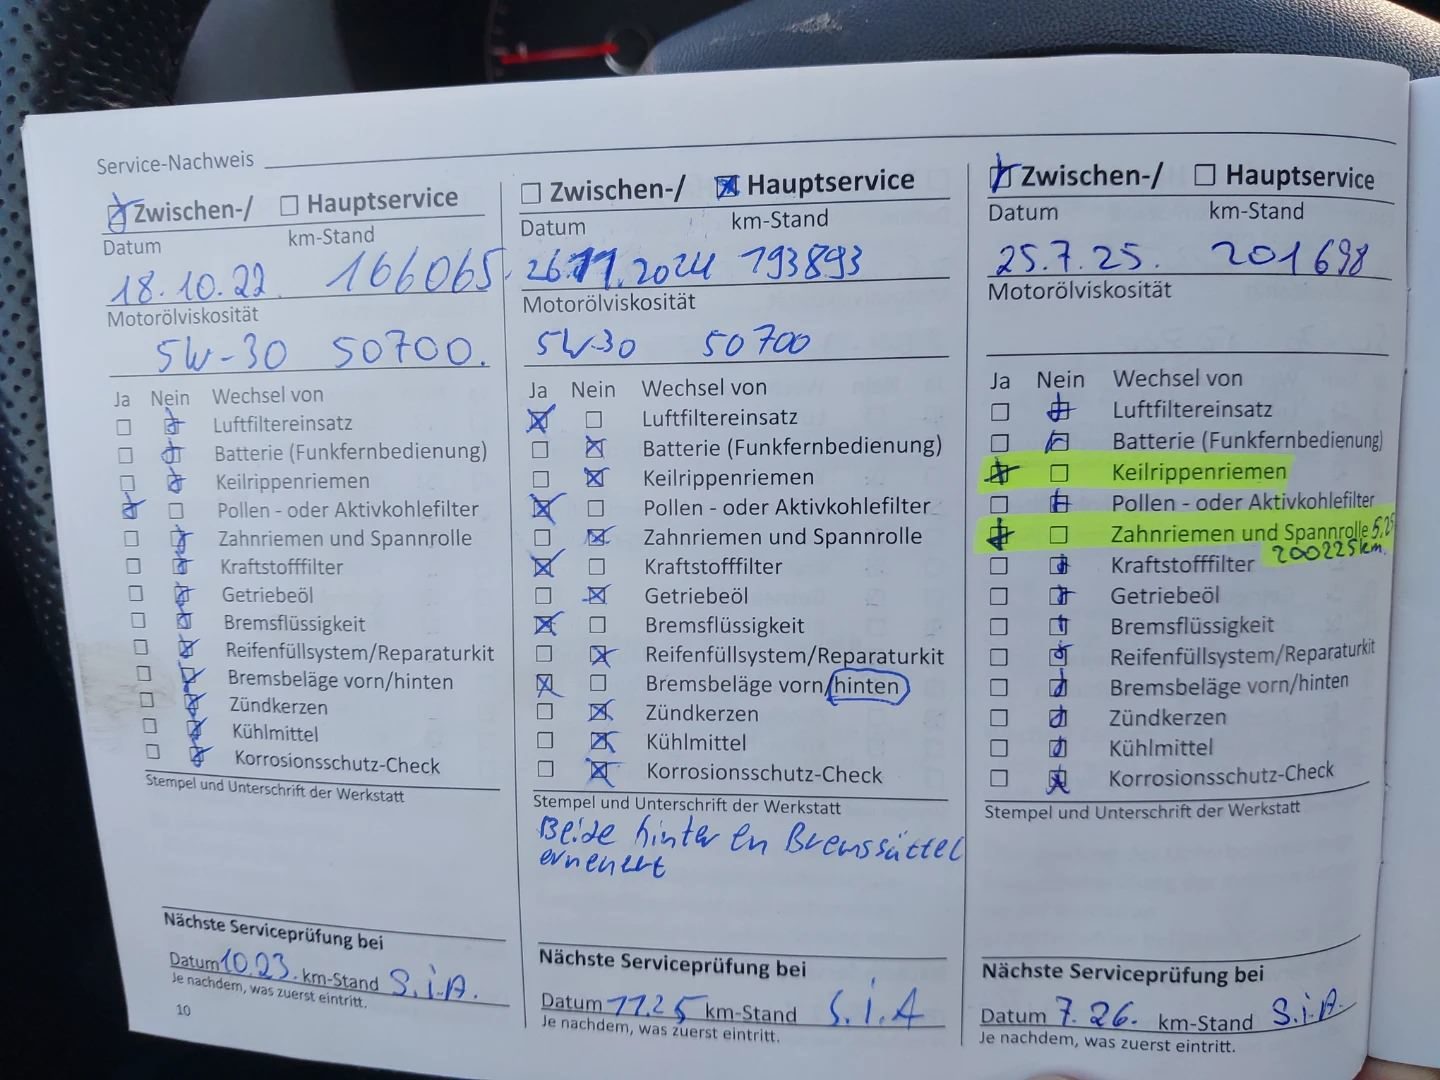 Service-Nachweis
Zwischen-/ Hauptservice
Datum km-Stand
18.10.22. 166065.
Motorölviskosität
5W-30 50700.
Ja Nein Wechsel von
Luftfiltereinsatz
Batterie (Funkfernbedienung)
Keilrippenriemen
Pollen - oder Aktivkohlefilter
Zahnriemen und Spannrolle
Kraftstofffilter
Getriebeöl
Bremsflüssigkeit
Reifenfüllsystem/Reparaturkit
Bremsbeläge vorn/hinten
Zündkerzen
Kühlmittel
Korrosionsschutz-Check
Stempel und Unterschrift der Werkstatt
Nächste Serviceprüfung bei
Datum 10.23. km-Stand S.i.A.
Je nachdem, was zuerst eintritt.
10
Zwischen-/ Hauptservice
Datum km-Stand
26.11.2024 193893
Motorölviskosität
5W-30 50700
Ja Nein Wechsel von
Luftfiltereinsatz
Batterie (Funkfernbedienung)
Keilrippenriemen
Pollen - oder Aktivkohlefilter
Zahnriemen und Spannrolle
Kraftstofffilter
Getriebeöl
Bremsflüssigkeit
Reifenfüllsystem/Reparaturkit
Bremsbeläge vorn/hinten
Zündkerzen
Kühlmittel
Korrosionsschutz-Check
Stempel und Unterschrift der Werkstatt
Beide hinteren Bremssättel
erneuert
Nächste Serviceprüfung bei
Datum 11.25 km-Stand S.i.A
Je nachdem, was zuerst eintritt.
Zwischen-/ Hauptservice
Datum km-Stand
25.7.25. 201698
Motorölviskosität
Ja Nein Wechsel von
Luftfiltereinsatz
Batterie (Funkfernbedienung)
Keilrippenriemen
Pollen - oder Aktivkohlefilter
Zahnriemen und Spannrolle 5.25
200225km.
Kraftstofffilter
Getriebeöl
Bremsflüssigkeit
Reifenfüllsystem/Reparaturkit
Bremsbeläge vorn/hinten
Zündkerzen
Kühlmittel
Korrosionsschutz-Check
Stempel und Unterschrift der Werkstatt
Nächste Serviceprüfung bei
Datum 7.26. km-Stand S.i.A.
Je nachdem, was zuerst eintritt.